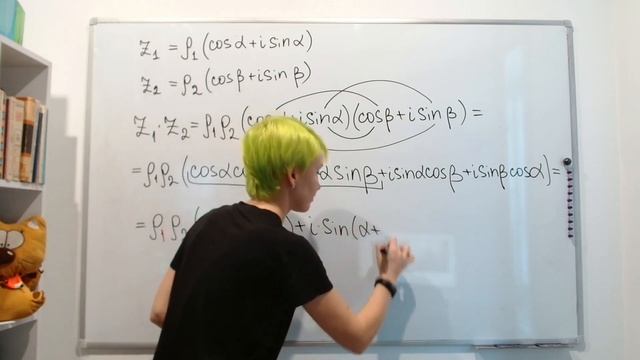 z₁ = ρ₁(cosα+i sinα)
z₂ = ρ₂(cosβ+i sinβ)
z₁·z₂ = ρ₁ρ₂(cosα+i sinα)(cosβ+i sinβ)=
=ρ₁ρ₂(cosαco sinβ+isinαcosβ+isinβcosα)=
=ρ₁ρ₂( )+i·sin(α+